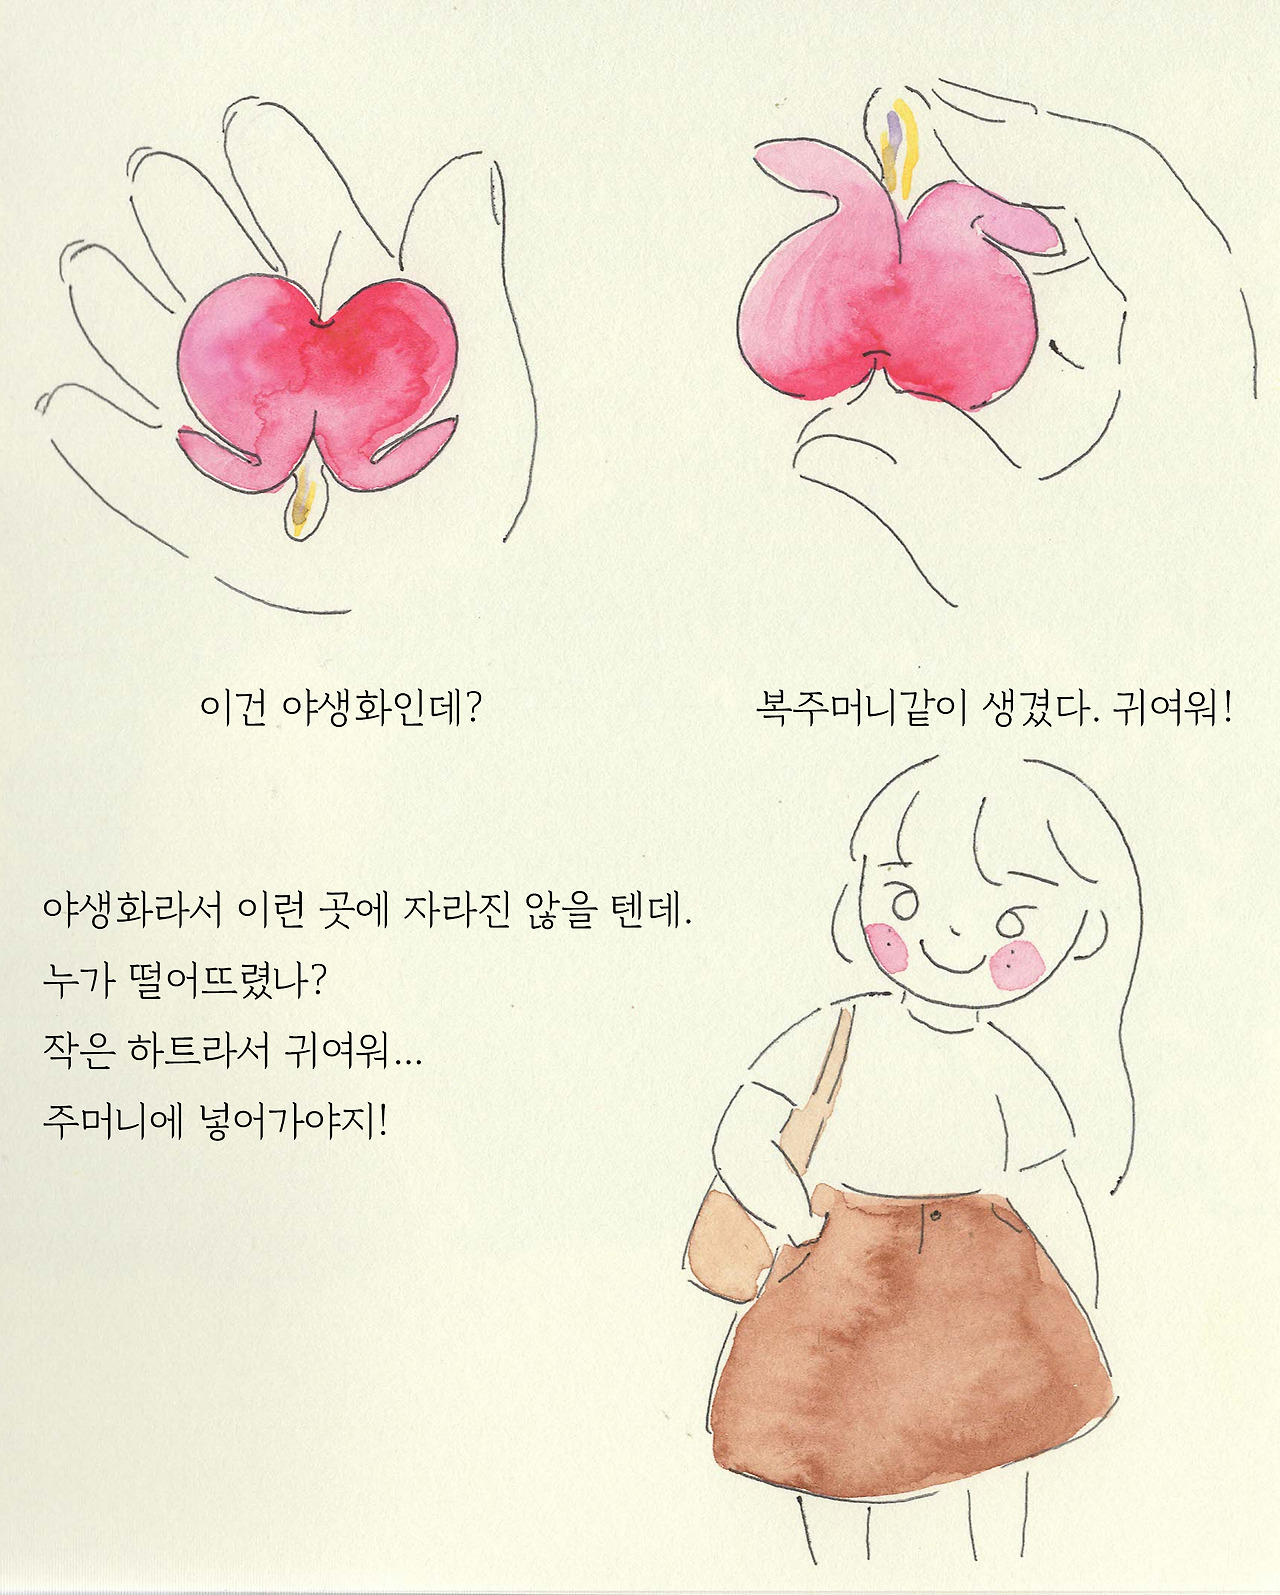 이건 야생화인데?
복주머니같이 생겼다. 귀여워!
야생화라서 이런 곳에 자라진 않을 텐데.
누가 떨어뜨렸나?
작은 하트라서 귀여워...
주머니에 넣어가야지!